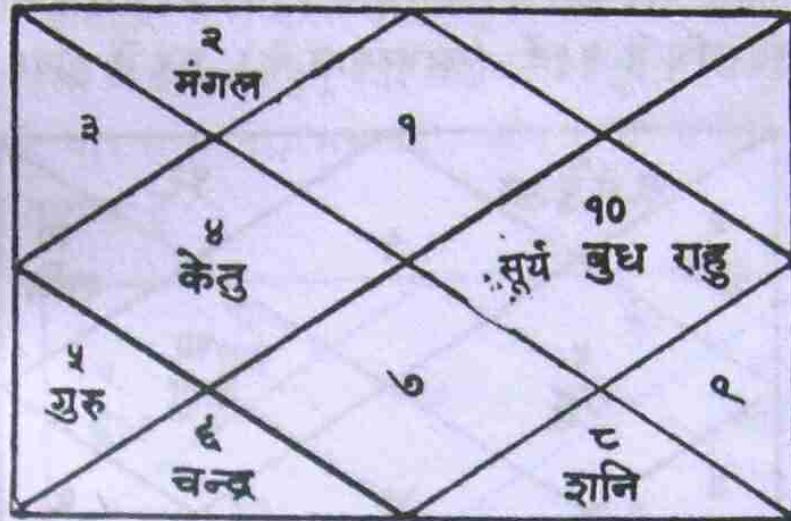 २
मंगल
३
१
४
केतु
१०
सूर्य बुध राहु
५
गुरु
७
९
६
चन्द्र
८
शनि